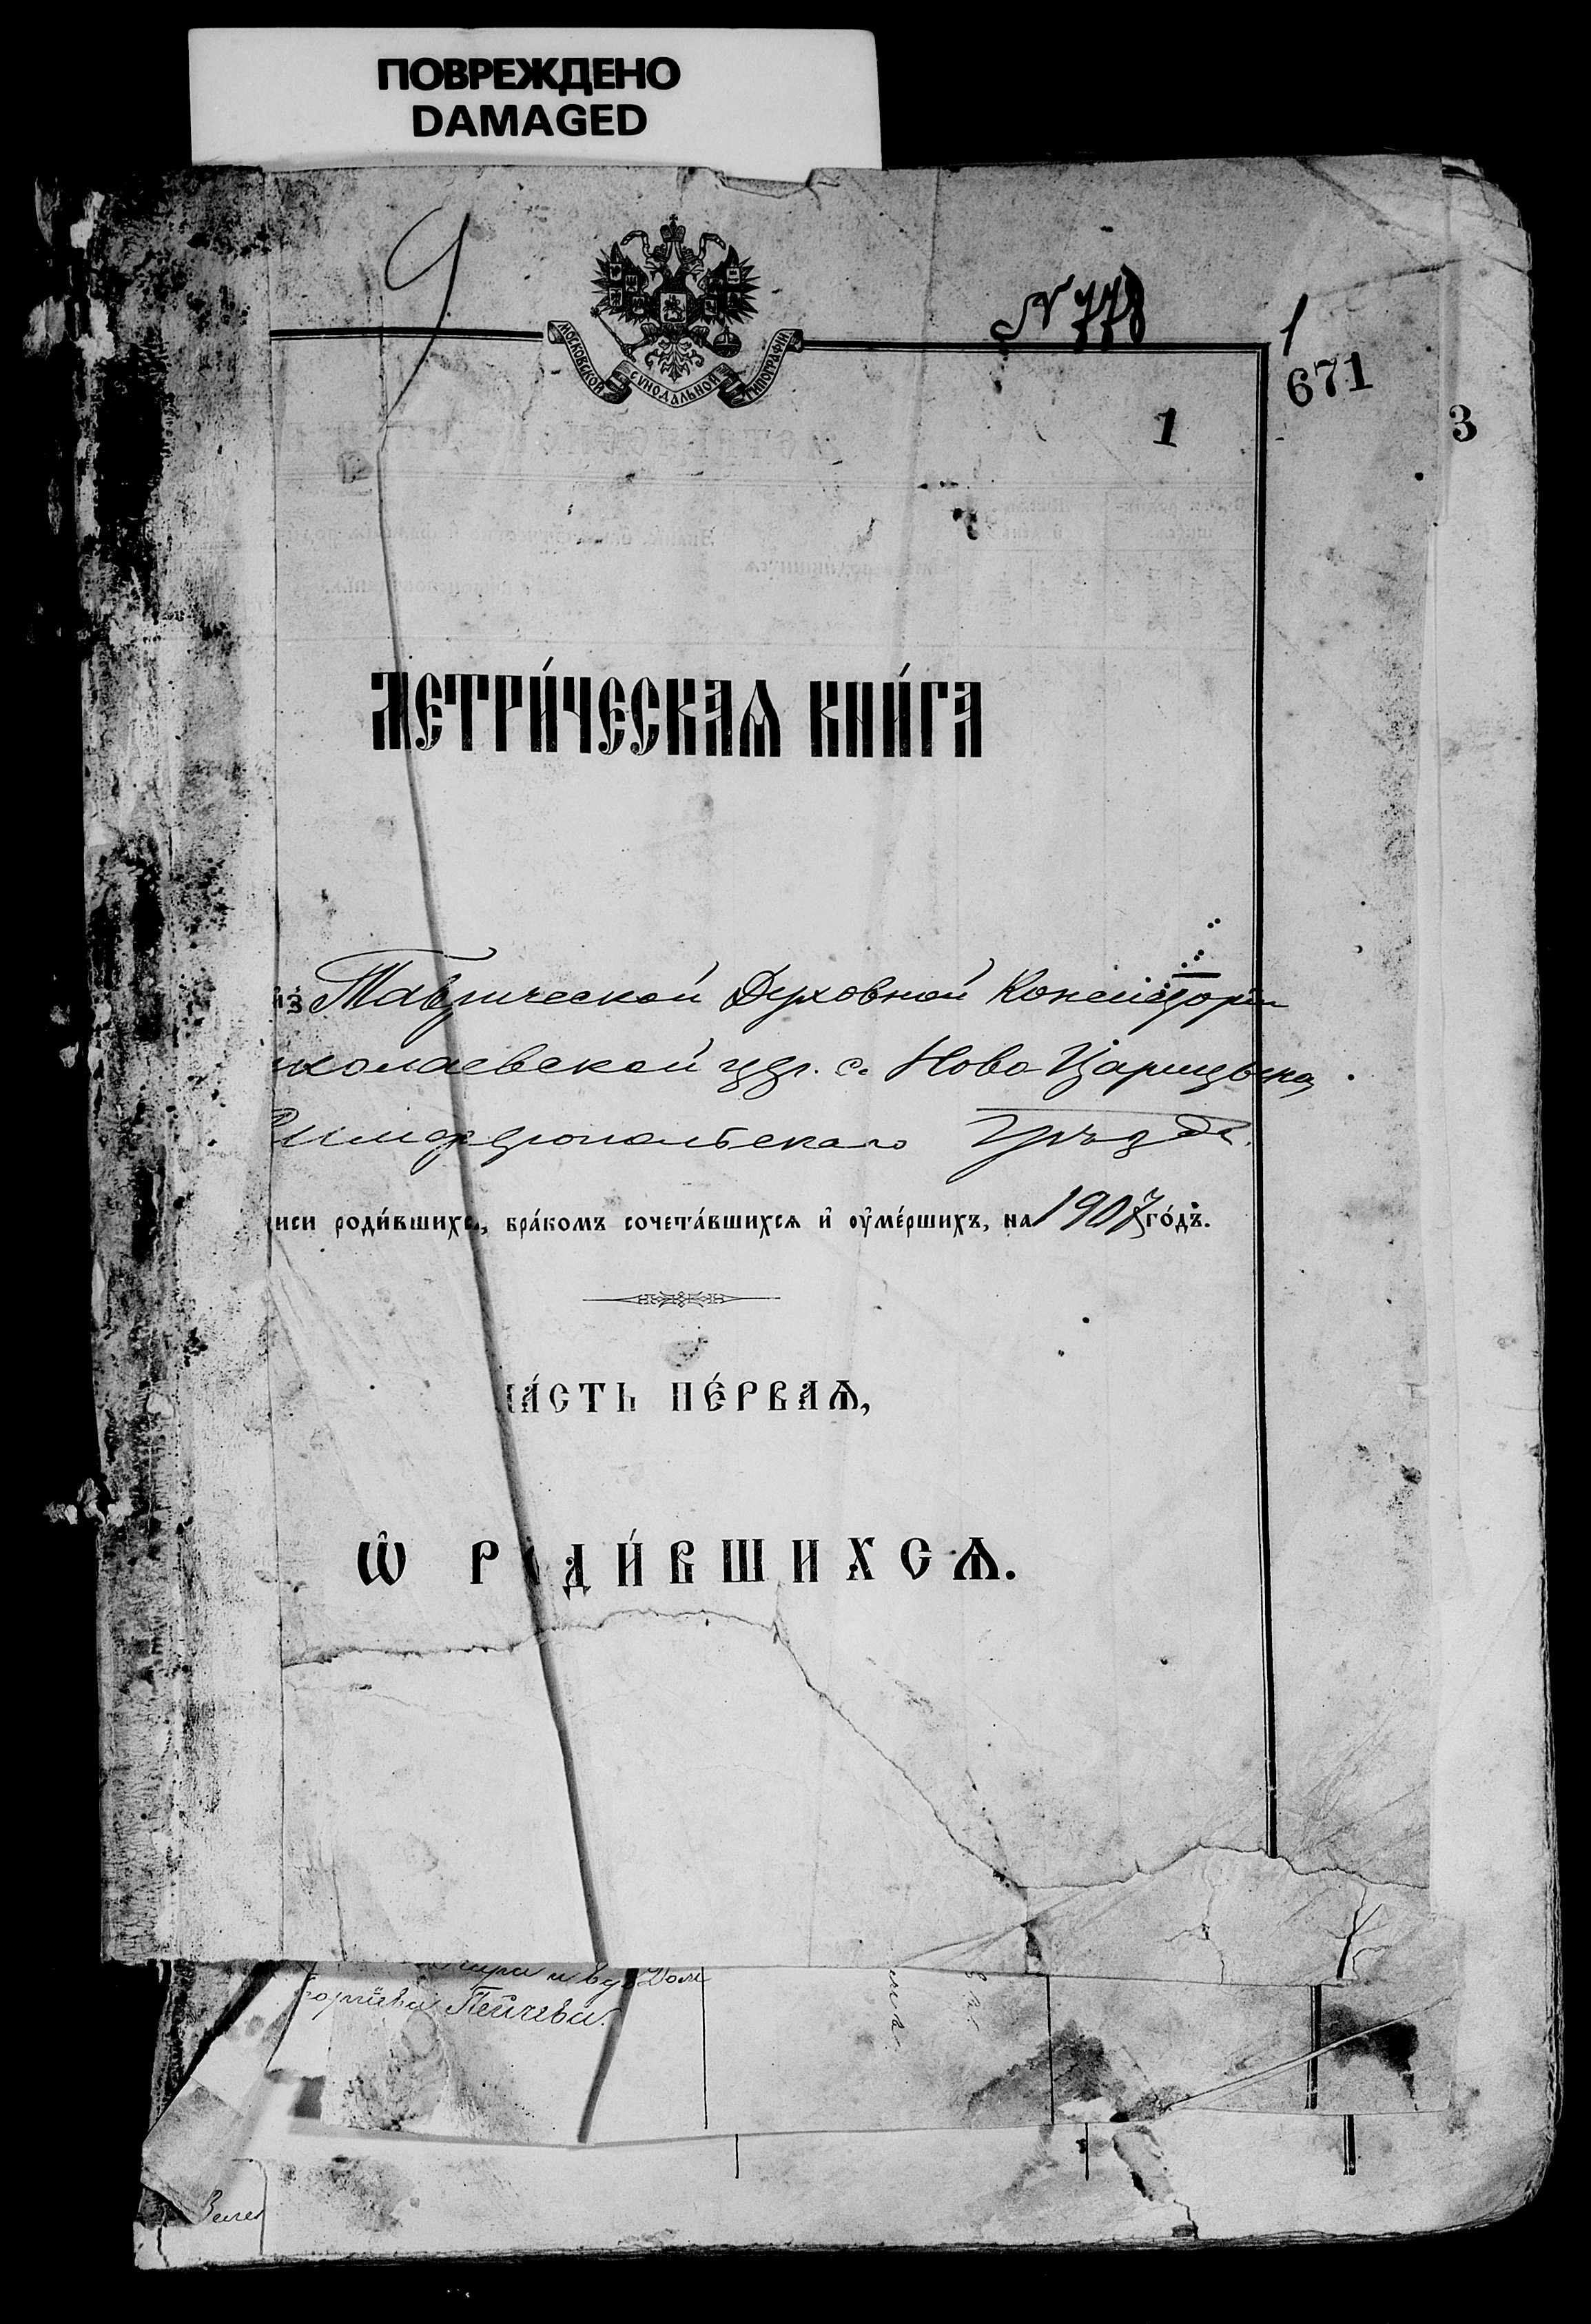 ПОВРЕЖДЕНО
DAMAGED
МОСКОВСКОЙ СѴНОДАЛЬНОЙ ТИПОГРАФІИ
N 778
1
671
1
3
МЕТРИ́ЧЕСКАѦ КНИ́ГА
из Таврической Духовной Консисторіи
иколаевской церк. с. Ново-Царицына
Симферопольскаго Уѣзда.
иси роди́вшихсѧ, бра́комъ сочета́вшихсѧ и҆ ᲂу҆ме́ршихъ, на 1907 го́дъ.
ча́сть пе́рваѧ,
Ѽ РОДИ́ВШИХСѦ.
и вд. Дом
горгіева Пейчева.